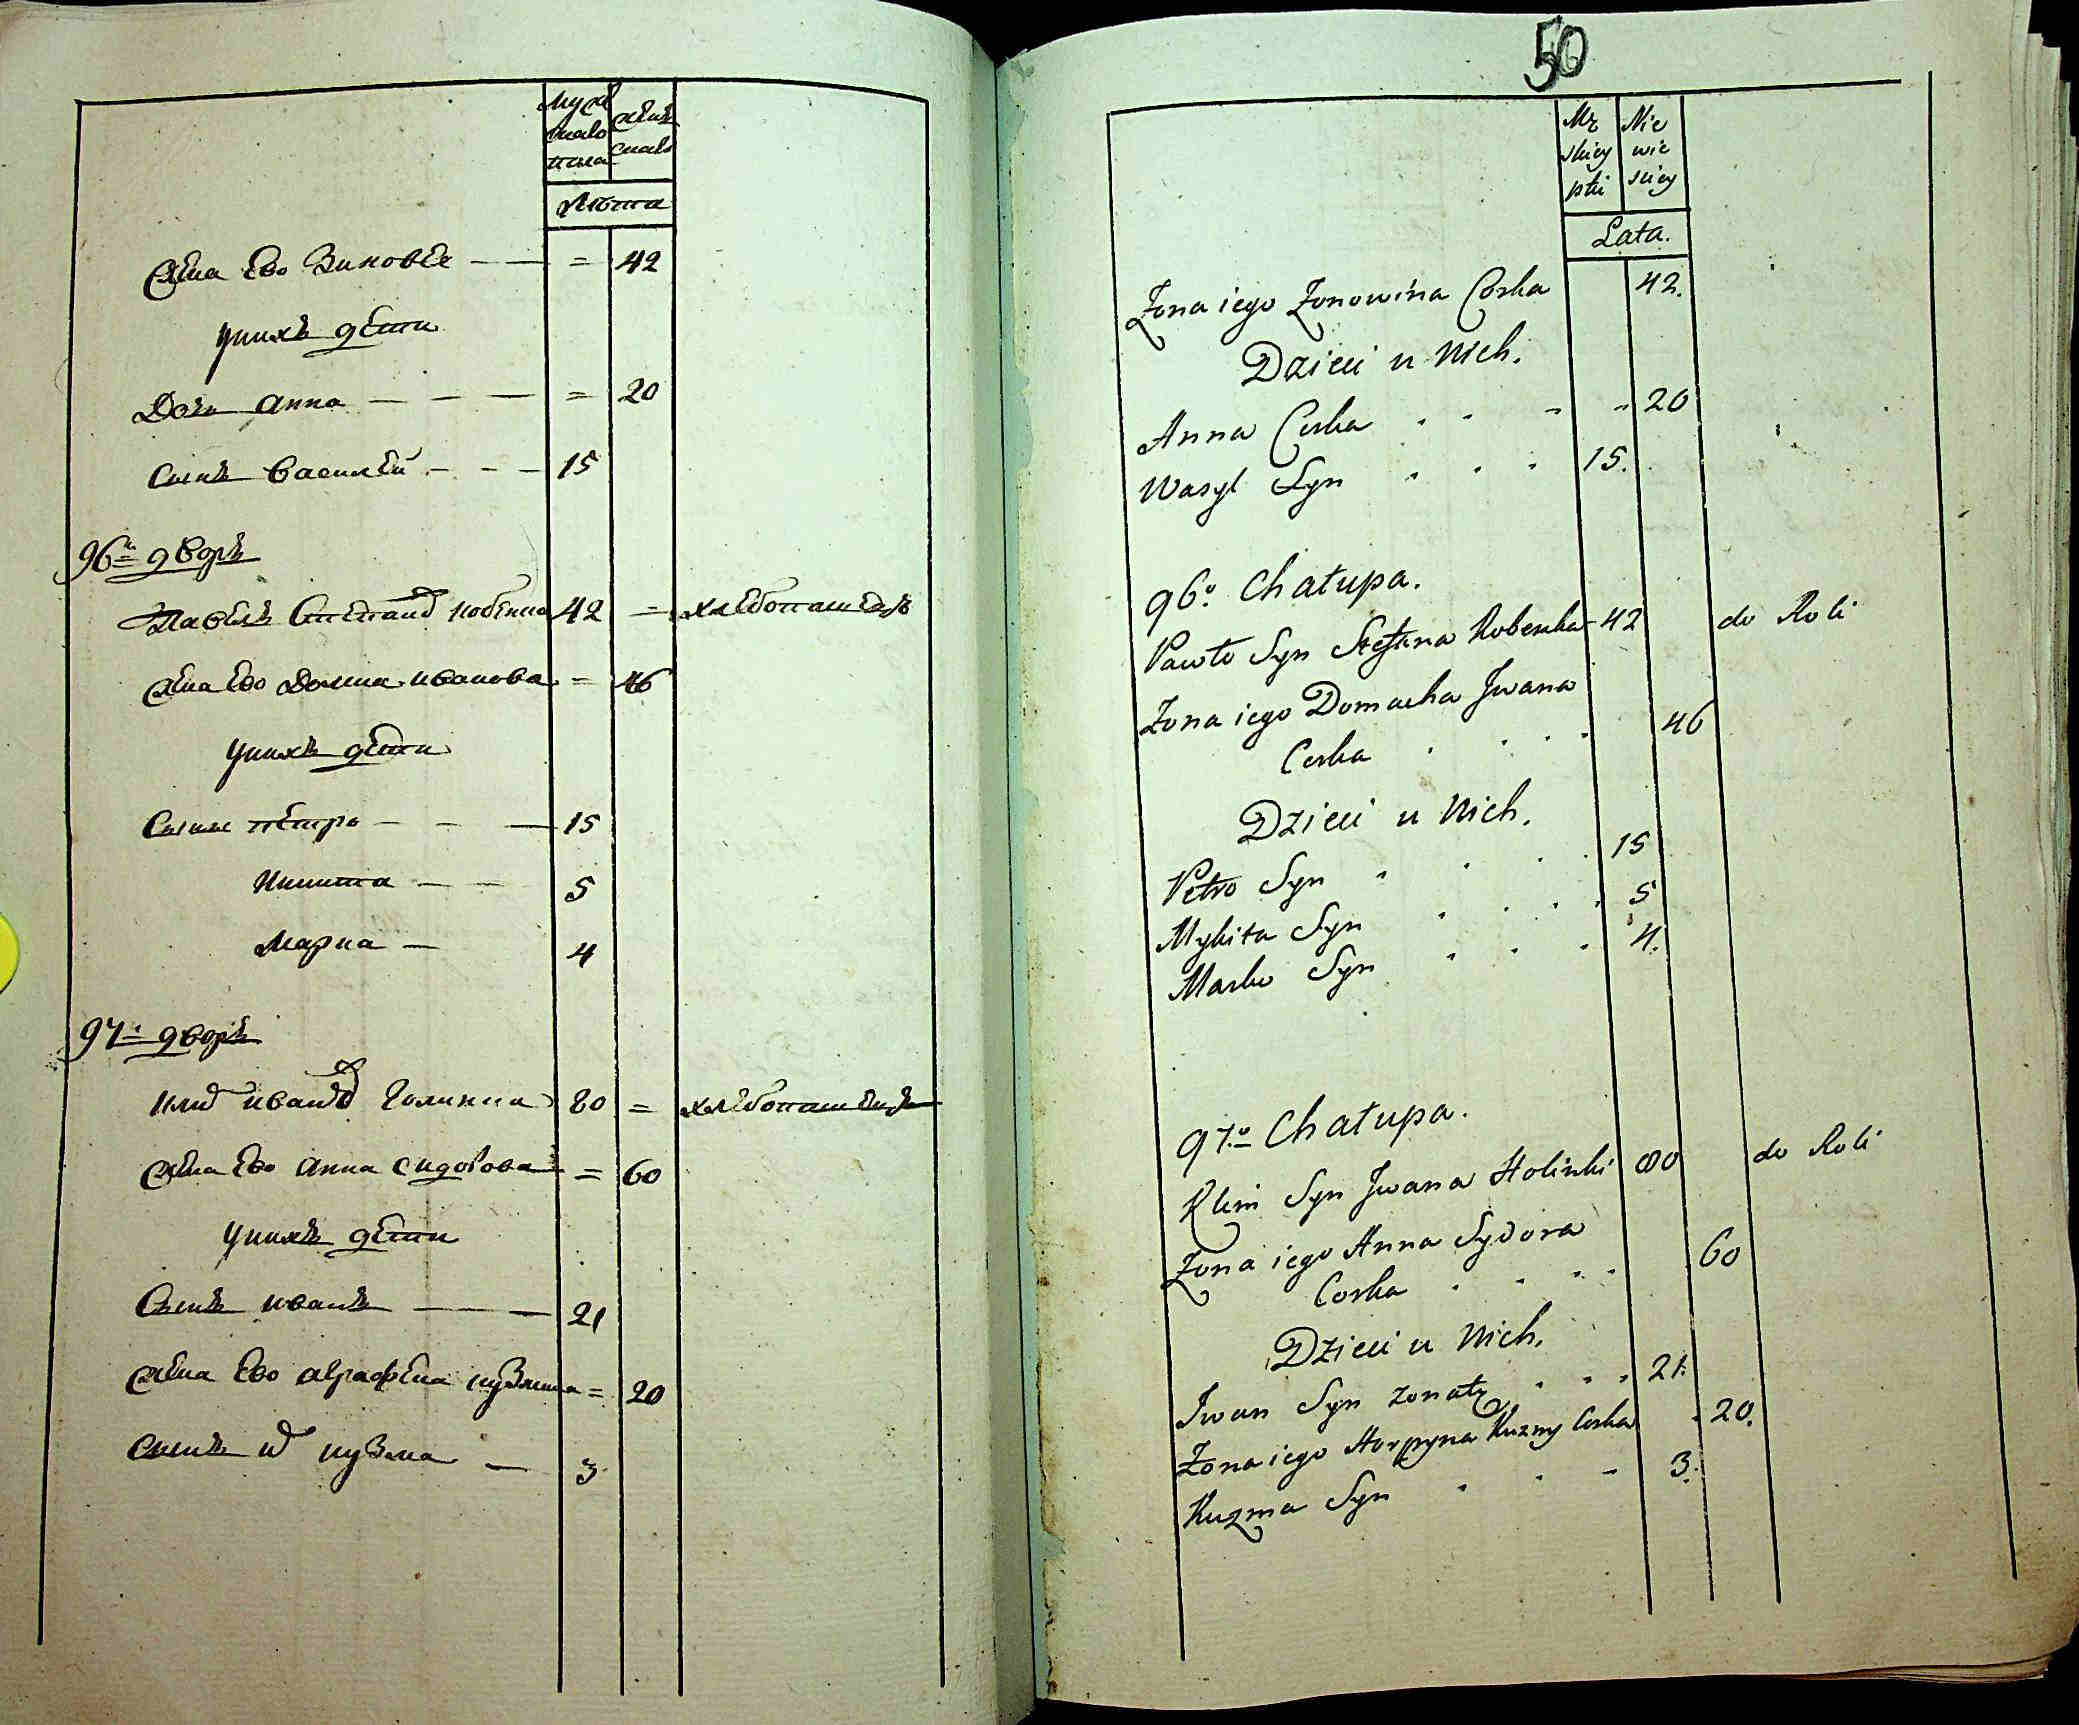 мужеска пола
женска
Лѣта
жена Ево Зиновѣя — — = 42
у нихъ дети
Дочь Анна — — — = 20
Сынъ Василей — — — 15
96й дворъ
Павелъ Степанов 42 = хлебопашецъ
жена Ево Домна иванова = 46
у нихъ дети
Сыны петро — — — 15
Никита — — 5
Марка — 4
97й дворъ
Клим иванов Голинки 80 = хлебопашецъ
жена Ево Анна сидорова = 60
у нихъ дети
Сынъ иванъ — — 21
жена Ево аграфена кузмина = 20
Сынъ кузма — 3
50
Mę
skiey
płci
Nie
wie
sciey
Lata.
Zona iego Zonowina Corka 42.
Dzieci u Nich.
Anna Corka . . - - 20
Wasyl Syn . . . 15.
96o. Chałupa.
Pawło Syn Stefana Kobenka 42 do Roli
Zona iego Domacha Jwana
Corka . . . . 46
Dzieci u Nich.
Petro Syn . . . . 15
Mykita Syn . . . . 5
Marko Syn . . . 4.
97o. Chałupa.
Klim Syn Jwana Holinki 80 do Roli
Zona iego Anna Sydora
Corka . . . . 60
Dzieci u Nich.
Jwan Syn zonaty . . . 21.
Zona iego Horpyna Kuzmy Corka . 20.
Kuzma Syn . . - 3.